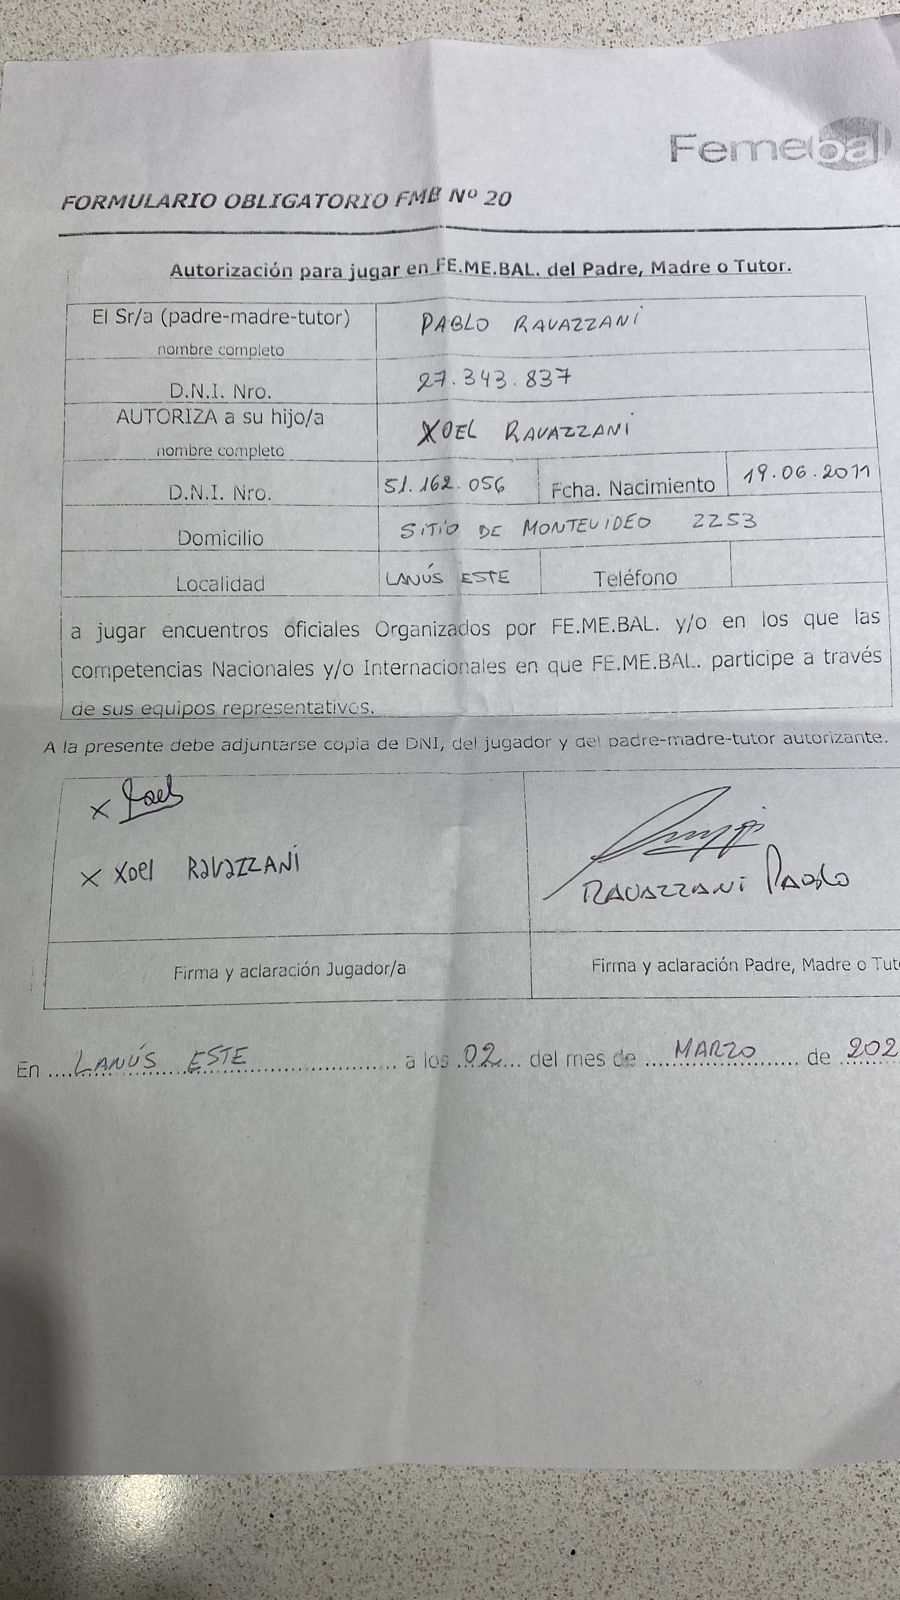 Femebal
FORMULARIO OBLIGATORIO FMB Nº 20
Autorización para jugar en FE.ME.BAL. del Padre, Madre o Tutor.
El Sr/a (padre-madre-tutor) PABLO RAVAZZANI
nombre completo
D.N.I. Nro. 27.343.837
AUTORIZA a su hijo/a XOEL RAVAZZANI
nombre completo
D.N.I. Nro. 51.162.056 Fcha. Nacimiento 19.06.2011
Domicilio SITIO DE MONTEVIDEO 2253
Localidad LANÚS ESTE Teléfono
a jugar encuentros oficiales Organizados por FE.ME.BAL. y/o en los que las
competencias Nacionales y/o Internacionales en que FE.ME.BAL. participe a través
de sus equipos representativos.
A la presente debe adjuntarse copia de DNI, del jugador y del padre-madre-tutor autorizante.
x Xoel
x Xoel RavaZZANI
RAVAZZANI PABLO
Firma y aclaración Jugador/a
Firma y aclaración Padre, Madre o Tut
En ....LANÚS ESTE.... a los 02 del mes de MARZO de 202